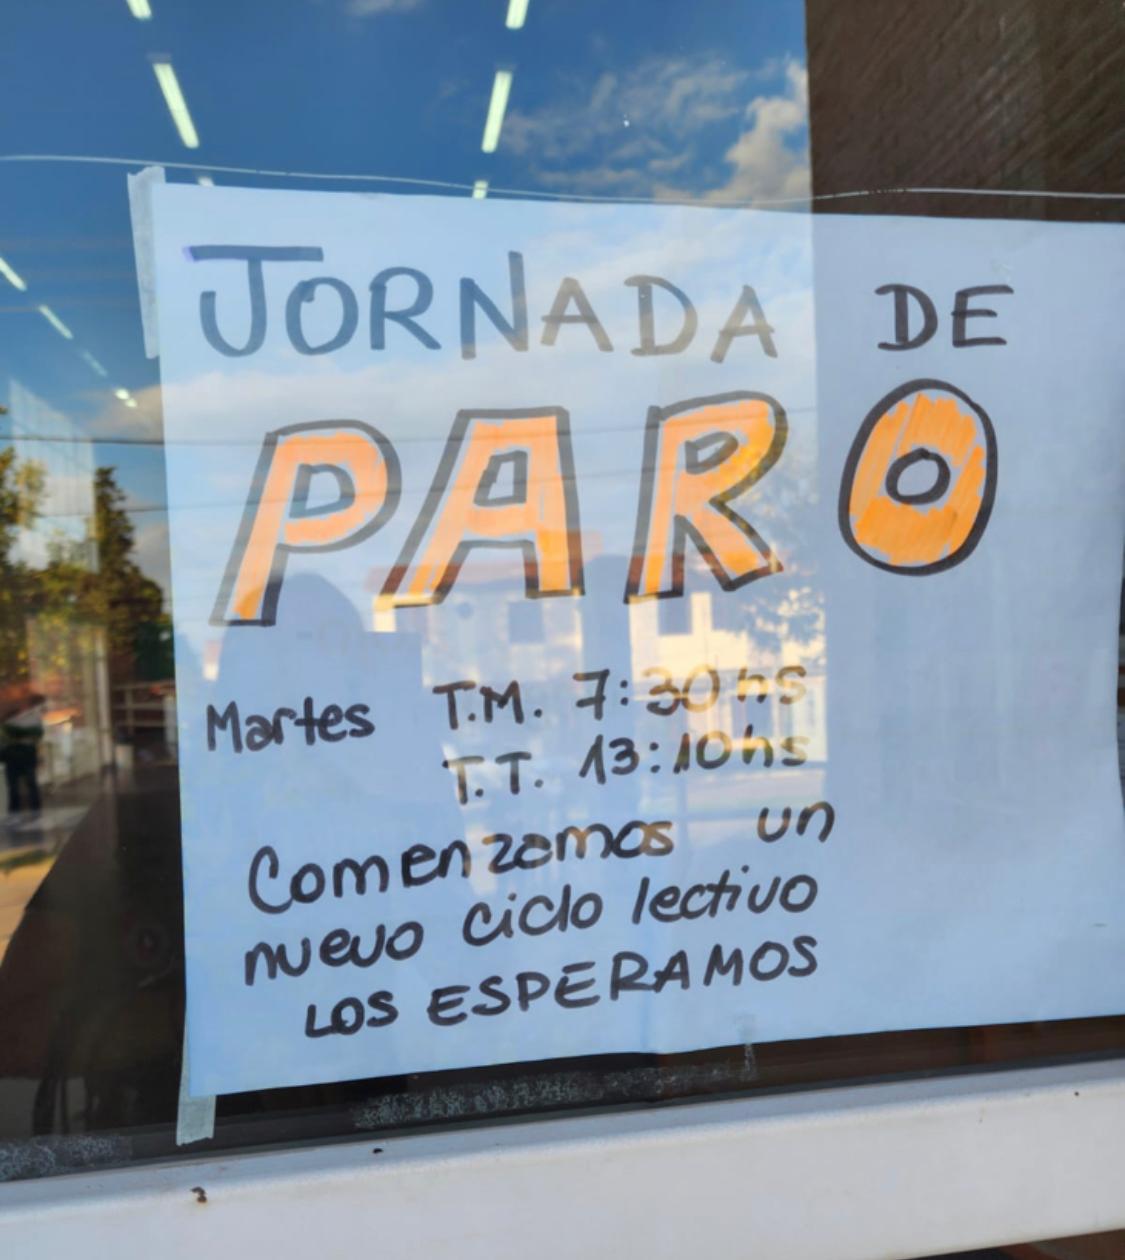 JORNADA DE
PARO
Martes T.M. 7:30hs
T.T. 13:10hs
Comenzamos un
nuevo ciclo lectivo
LOS ESPERAMOS